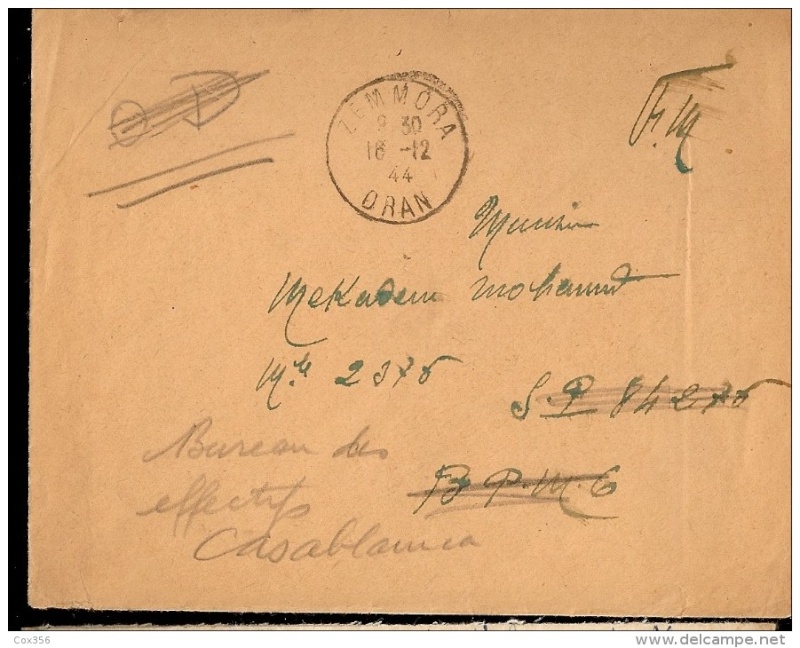 O D
ZEMMORA
9 30
16 -12
44
ORAN
F.M
Monsieur
Mekadem Mohamed
Mle 2376
S.P 84276
B.P.M.6
Bureau des
effectifs
Casablanca
Cox356
www.delcampe.net